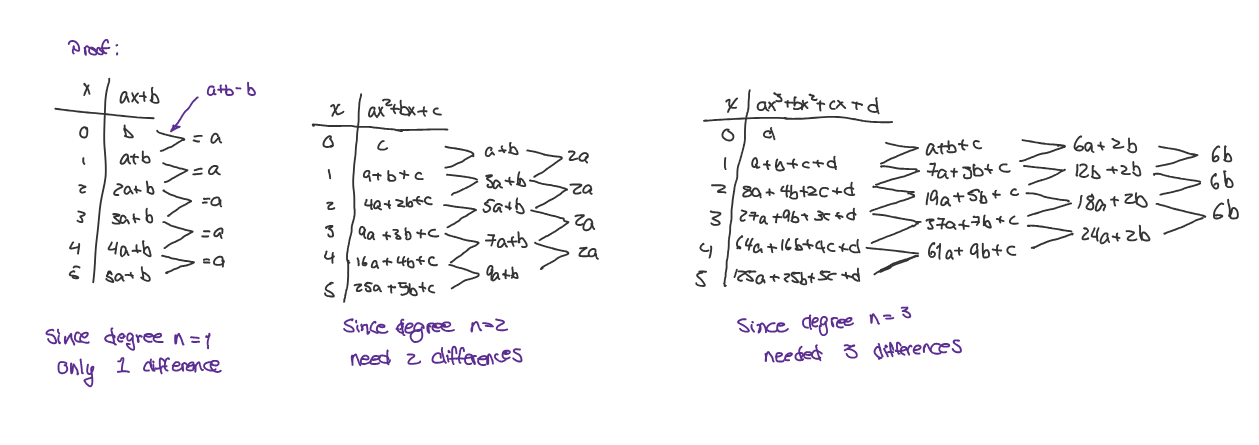 Proof:
x | ax+b
a+b-b
0 | b
= a
1 | a+b
= a
2 | 2a+b
= a
3 | 3a+b
= a
4 | 4a+b
= a
5 | 5a+b
Since degree n=1
only 1 difference
x | ax²+bx+c
0 | c
a+b 2a
1 | a+b+c
3a+b 2a
2 | 4a+2b+c
5a+b 2a
3 | 9a+3b+c
7a+b 2a
4 | 16a+4b+c
9a+b
5 | 25a+5b+c
Since degree n=2
need 2 differences
x | ax³+bx²+cx+d
0 | d
a+b+c 6a+2b 6b
1 | a+b+c+d
7a+3b+c 12b+2b 6b
2 | 8a+4b+2c+d
19a+5b+c 18a+2b 6b
3 | 27a+9b+3c+d
37a+7b+c 24a+2b
4 | 64a+16b+4c+d
61a+9b+c
5 | 125a+25b+5c+d
Since degree n=3
needed 3 differences